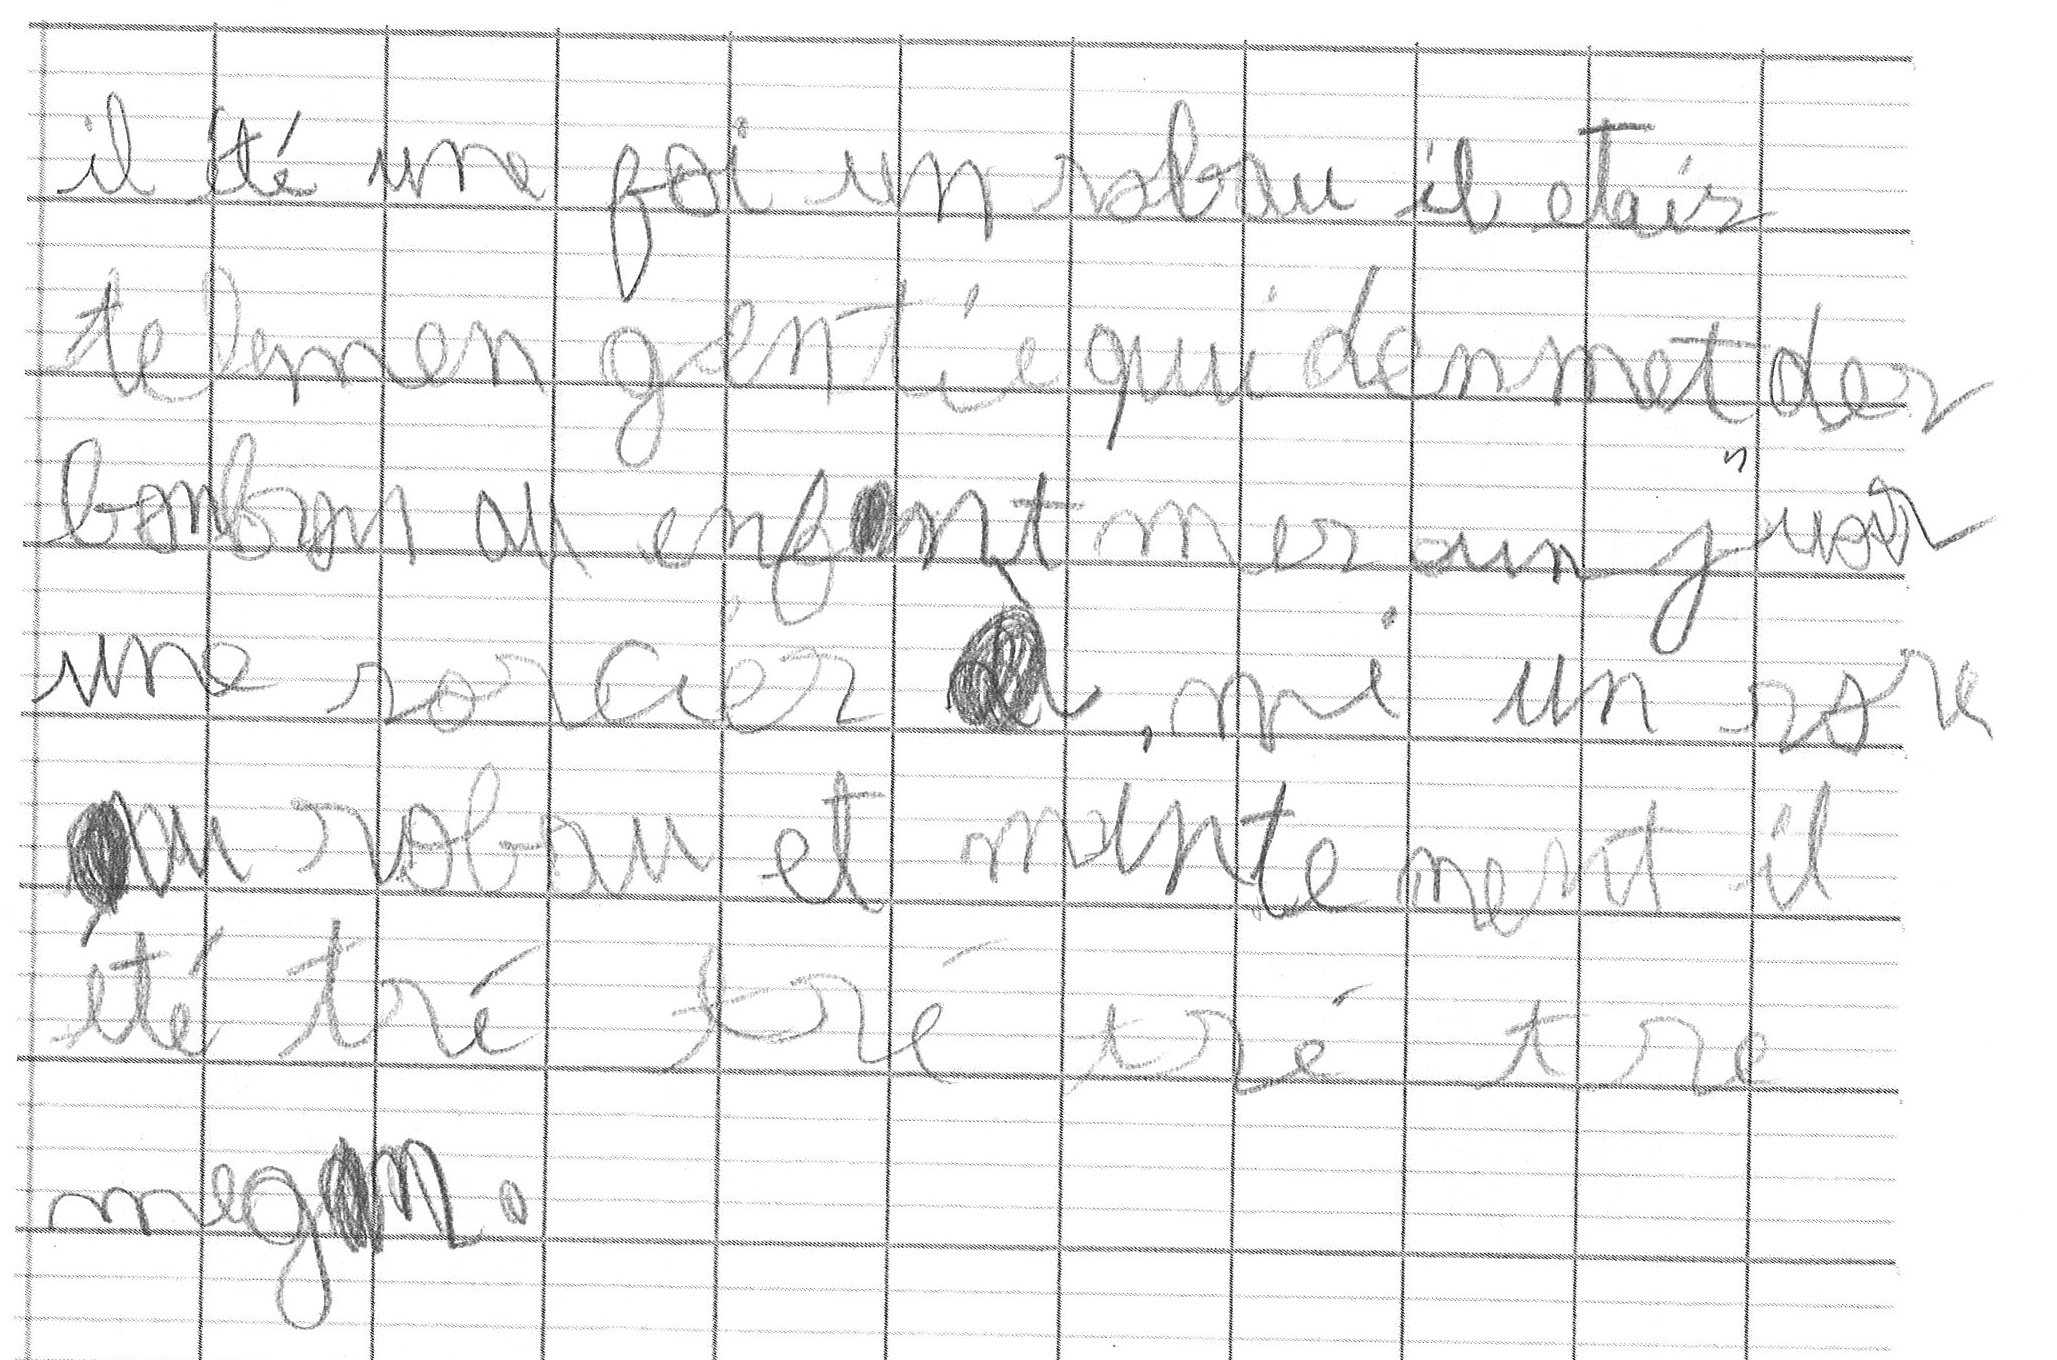 il été une foi un robau il etais
telemen gentie qui dennmet des
bonbon au enfant mes aun juoir
une sorcier a, mi un sore
au robau et mintement il
été tré tré tré tre
megan.